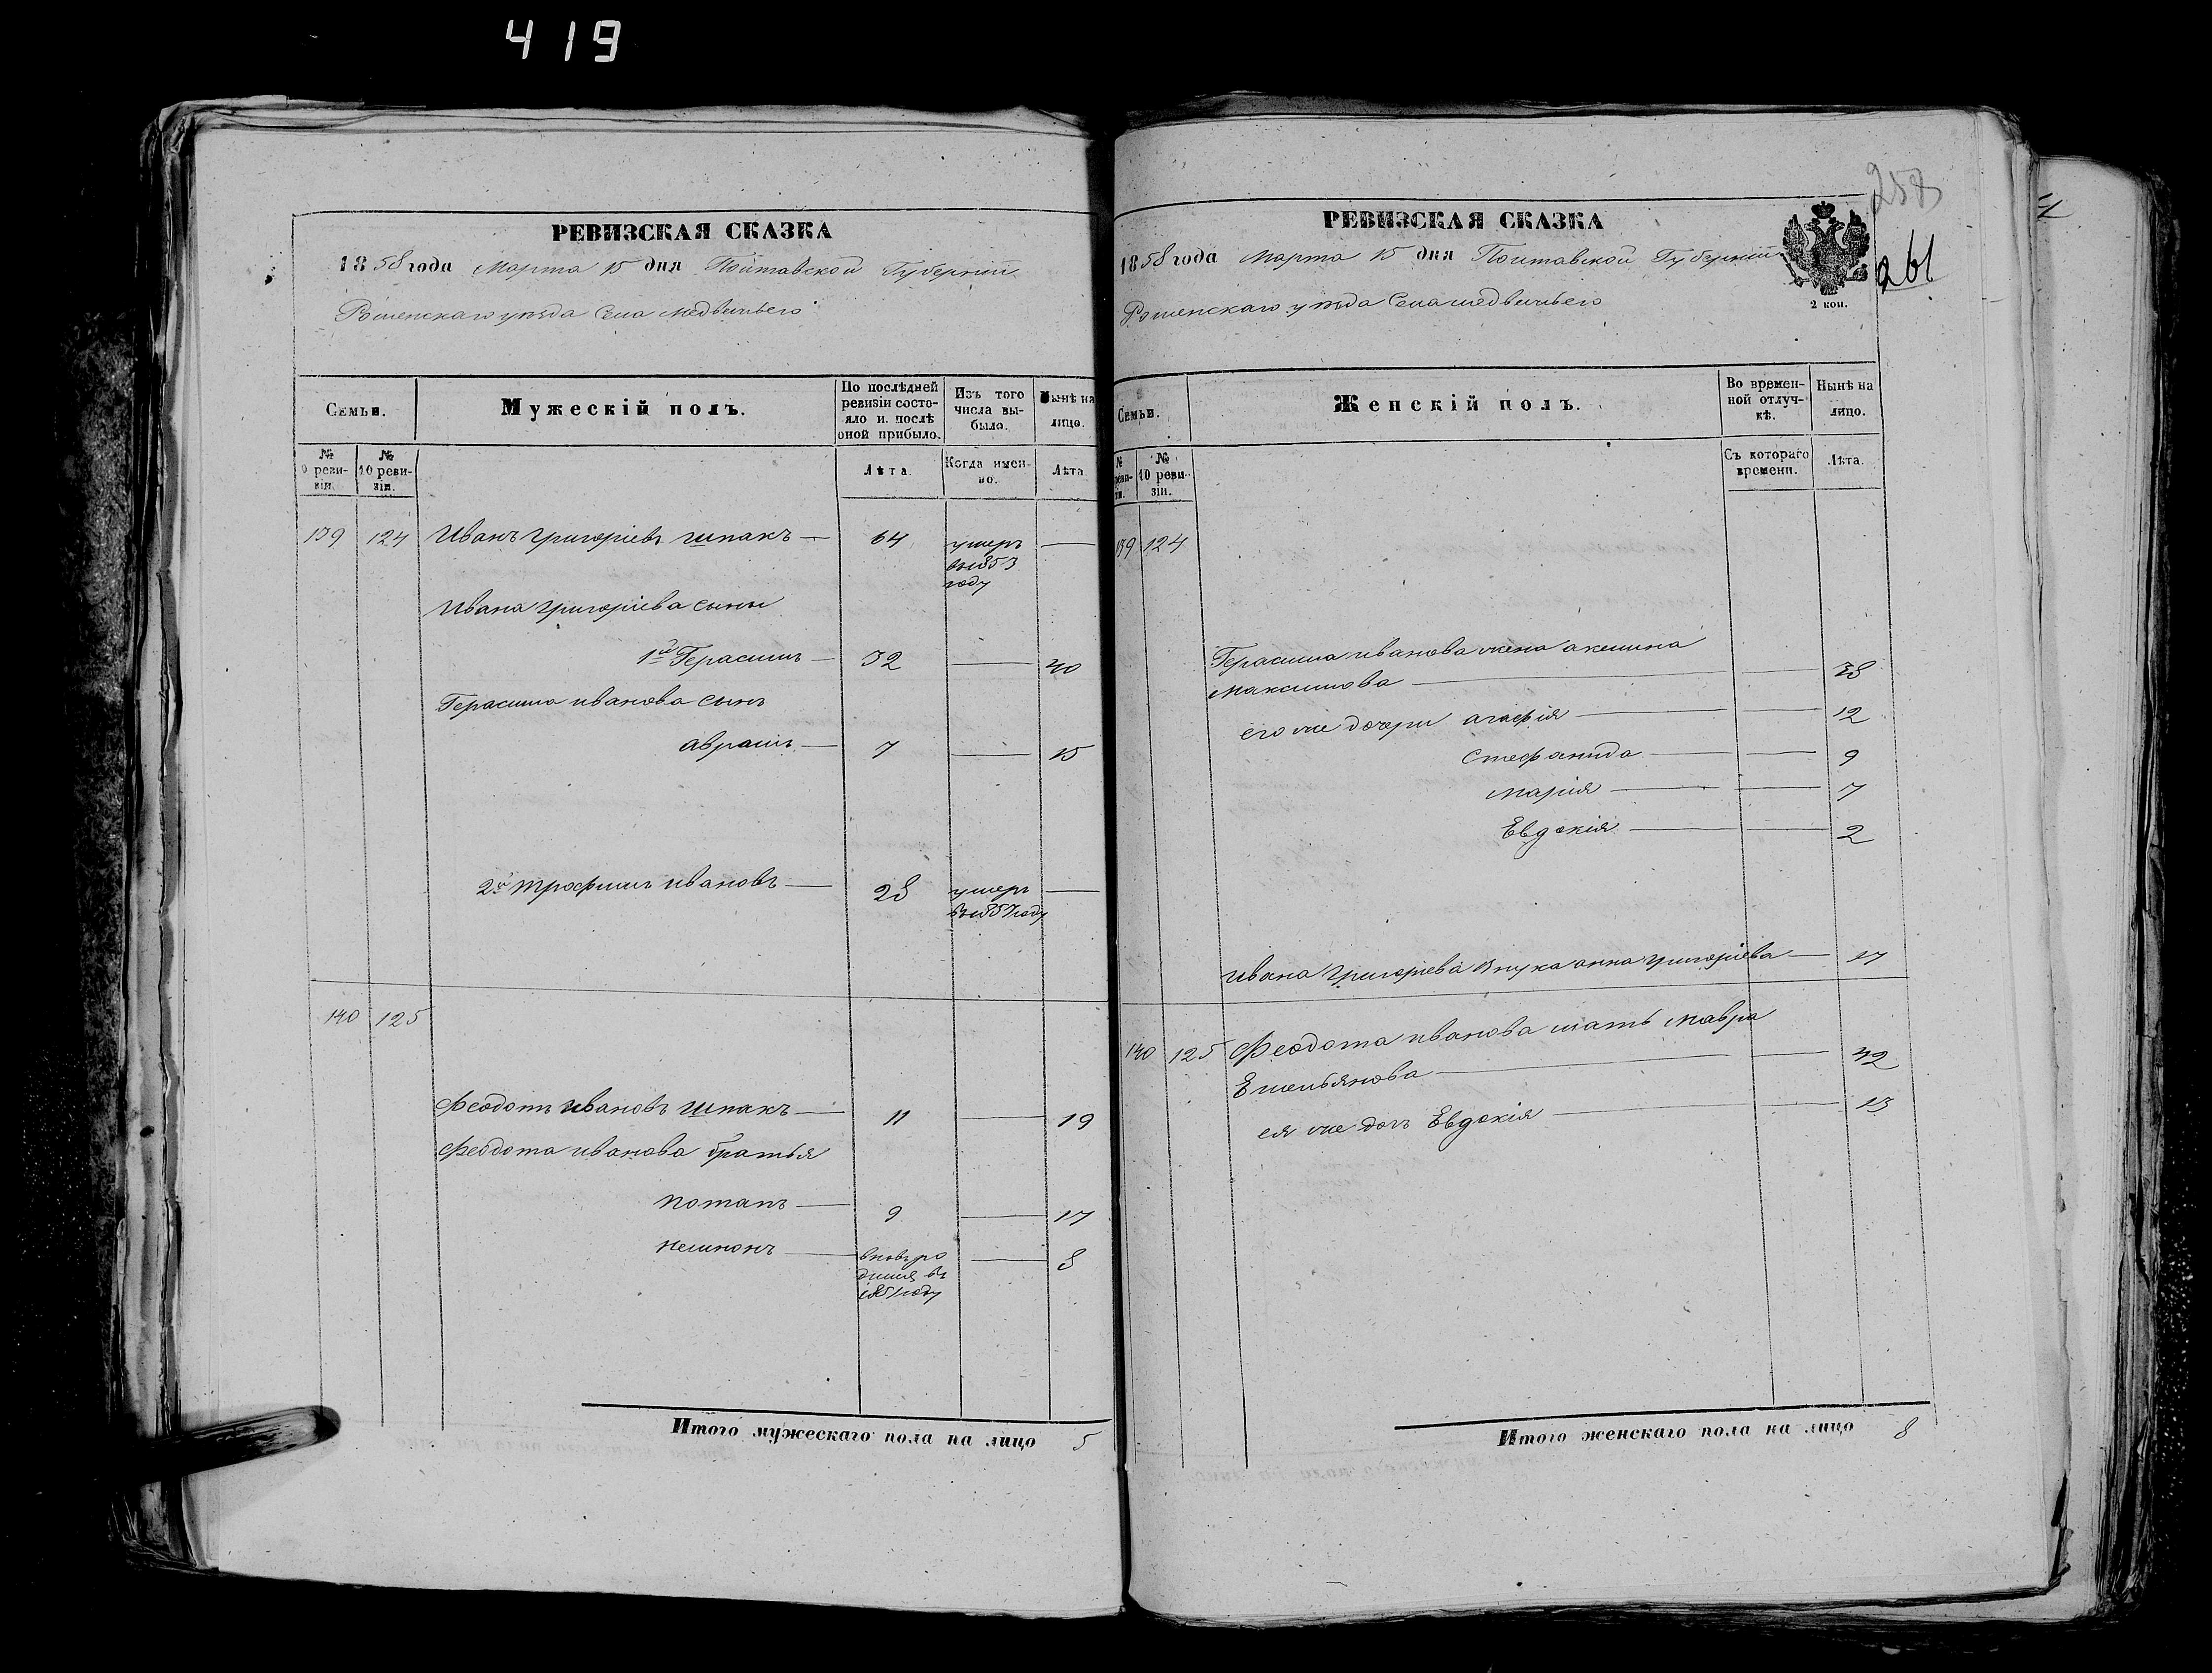 419
РЕВИЗСКАЯ СКАЗКА
1858 года Марта 15 дня Полтавской Губерніи
Роменскаго уѣзда Села Медвежьего
Семьи.
Мужескій полъ.
По послѣдней ревизіи состояло и послѣ оной прибыло.
Изъ того числа выбыло.
Нынѣ на лицо.
№ 9 ревизіи.
№ 10 ревизіи.
Лѣта.
Когда именно.
Лѣта
139 124 Иванъ Григоріевъ Шпакъ — 64 умеръ —
въ 1853
году
Ивана Григоріева сыны
1й Герасимъ — 32 — 40
Герасима Иванова сынъ
Аврамъ — 7 — 15
2й Трофимъ Ивановъ — 28 умеръ —
въ 1857 году
140 125
Феодотъ Ивановъ Шпакъ — 11 — 19
Феодота Иванова братья
Потапъ — 9 — 17
вновь ро — 8
дился въ
1851 году
Итого мужескаго пола на лицо 5
258
261
РЕВИЗСКАЯ СКАЗКА
1858 года Марта 15 дня Полтавской Губерніи
2 коп.
Роменскаго уѣзда Села Медвежьего
Семьи.
Женскій полъ.
Во временной отлучкѣ.
Нынѣ на лицо.
№ ревизіи.
№ 10 ревизіи.
Съ котораго времени.
Лѣта.
139 124
Герасима Иванова жена Акилина
Максимова — — 38
его же дочери Агафія — — 12
Стефанида — — 9
Марія — — 7
Евдокія — — 2
Ивана Григоріева внука Анна Григоріева — 17
140 125 Феодота Иванова мать Мавра
Емельянова — — 42
ея же дочь Евдокія — — 13
Итого женскаго пола на лицо 8